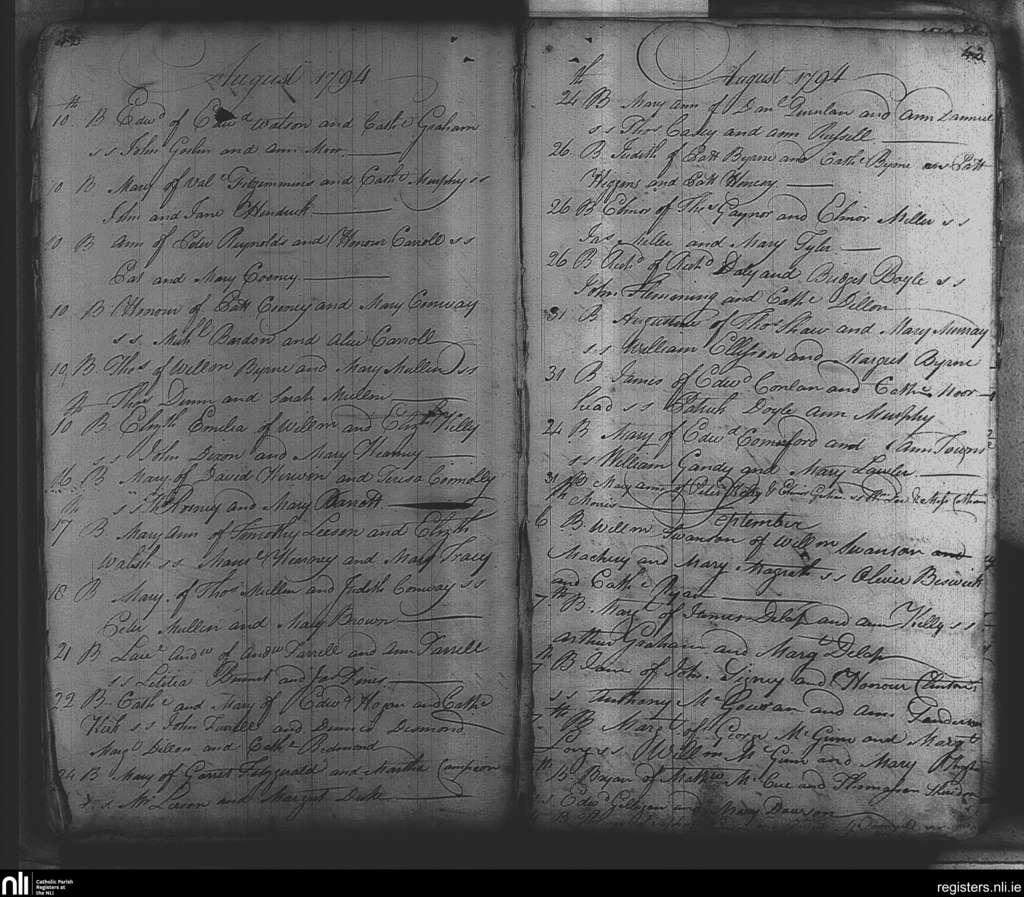 42
August 1794
10th B Edwd of Edwd Watson and Cathe Graham
s s John Goslin and Ann
10 B Mary of Vale Fitzimmins and Cathe Murphy s s
John and Jane Hendrick
10 B Ann of Peter Reynolds and Honour Carroll s s
Pat and Mary Cooney
10 B Honour of Patt Cooney and Mary Conway
s s Michl Bardon and Alice Carroll
10 B Thos of Willm Byrne and Mary Mullen s s
Thos Dunn and Sarah Mullen
10 B Elizth Emelia of Willm and Elizth Kelly
s s John Dixon and Mary Kearney
16 B Mary of David Kirwen and Teresa Connolly
s s Rooney and Mary Barrott
17 B Mary Ann of Timothy Leeson and Elizth
Walsh s s Kearney and Mary Tracy
18 B Mary of Thos Mullen and Judith Conway s s
Peter Mullen and Mary Brown
21 B Laue Andw of Andw Farrell and Ann Farrell
s s Letitia and Jas
22 B Cathe and Mary of Edwd Hogan and Cathe
Kirk s s John Farrell and Dennis Desmond
Margt Dillon and Cathe Redmond
24 B Mary of Garret Fitzgerald and Martha Campion
s s Mr Leeson and Margret Duke
42
August 1794
24th B Mary Ann of Danl Quinlan and Ann
s s Thos Casey and Ann Russell
26 B Judith of Patt Byrne and Cathe Byrne Patt
Higgins and Patt
26 B Elinor of Thos Gaynor and Elinor Miller s s
Jas Miller and Mary Tyler
26 B Richd of Richd Daly and Bridget Boyle s s
John Flemming and Cathe Dillon
31 B Augustine of Thos Shaw and Mary Murray
s s William Ellison and Margret Byrne
31 B James of Edwd Conlan and Cathe Moor
head s s Patrick Doyle Ann Murphy
24 B Mary of Edwd Comerford and Ann Towns
s s William Gandy and Mary Lawler
31 B Mary Ann of Peter & Elinor s s
September
6th B Willm Swanson of Willm Swanson and
Mackey and Mary Magrath s s Oliver Beswick
and Cathe Ryan
7th B Mary of James Delap and Ann Kelly s s
Arthur Graham and Margt Delap
7th B Jane of John Tigney and Honour
s s Anthony McGowran and Ann
7th B Margt of George McGinn and Margt
Long s s Willm McGinn and Mary
B Bryan of Mathw McCue and Thomason
s s Edwd Gilligan and Mary Dawson
nli
Catholic Parish
Registers at
the NLI
registers.nli.ie